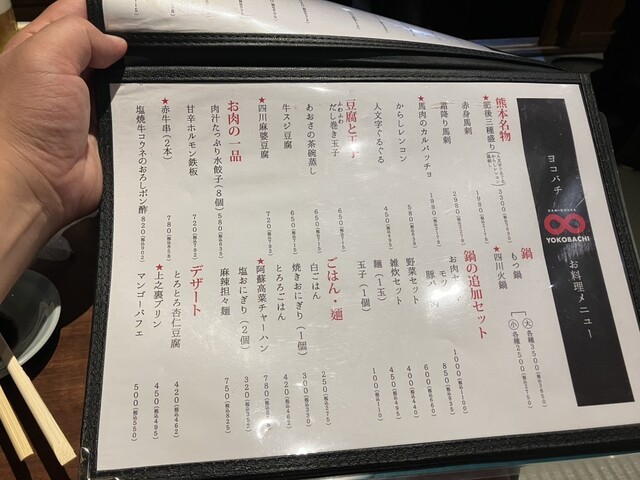 ヨコバチ
KAMINOURA
YOKOBACHI
お料理メニュー
熊本名物
★肥後三種盛り 3300
赤身馬刺 1980
霜降り馬刺 2980
★馬肉のカルパッチョ 1980
からしレンコン 580
人文字ぐるぐる 450
豆腐と玉子
ふわふわ
だし巻き玉子 650
あおさの茶碗蒸し 650
牛スジ豆腐 650
★四川麻婆豆腐 720
お肉の一品
肉汁たっぷり水餃子(8個) 580
甘辛ホルモン鉄板 720
★赤牛串(2本) 780
塩焼牛コウネのおろしポン酢 820
鍋
もつ鍋
★四川火鍋
大 各種3500
小 各種2500
鍋の追加セット
お肉 1000(税込1100)
モツ 850(税込935)
豚バラ 600(税込660)
野菜セット 400(税込440)
雑炊セット 450(税込495)
麺(1玉) 100(税込110)
玉子(1個)
ごはん・麺
白ごはん 250(税込275)
焼きおにぎり(1個) 300(税込330)
とろろごはん 420(税込462)
★阿蘇高菜チャーハン 780(税込858)
塩おにぎり(2個) 320(税込352)
麻辣担々麺 750(税込825)
デザート
とろとろ杏仁豆腐 420(税込462)
★上之裏プリン 450(税込495)
マンゴーパフェ 500(税込550)